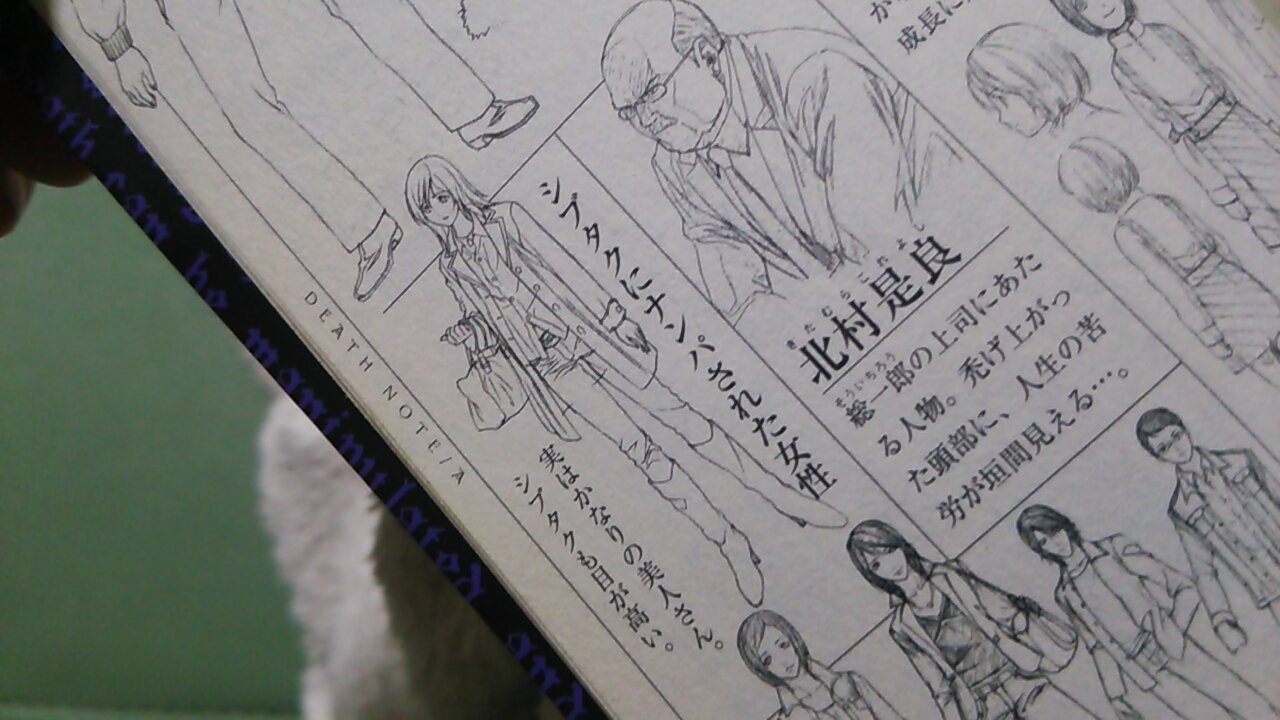 成長に
北村是良
きたむらこれよし
総一郎の上司にあた
そういちろう
る人物。禿げ上がっ
た頭部に、人生の苦
労が垣間見える…。
シブタクにナンパされた女性
実はかなりの美人さん。
シブタクも目が高い。
DEATH NOTE/A
can be manipulated and